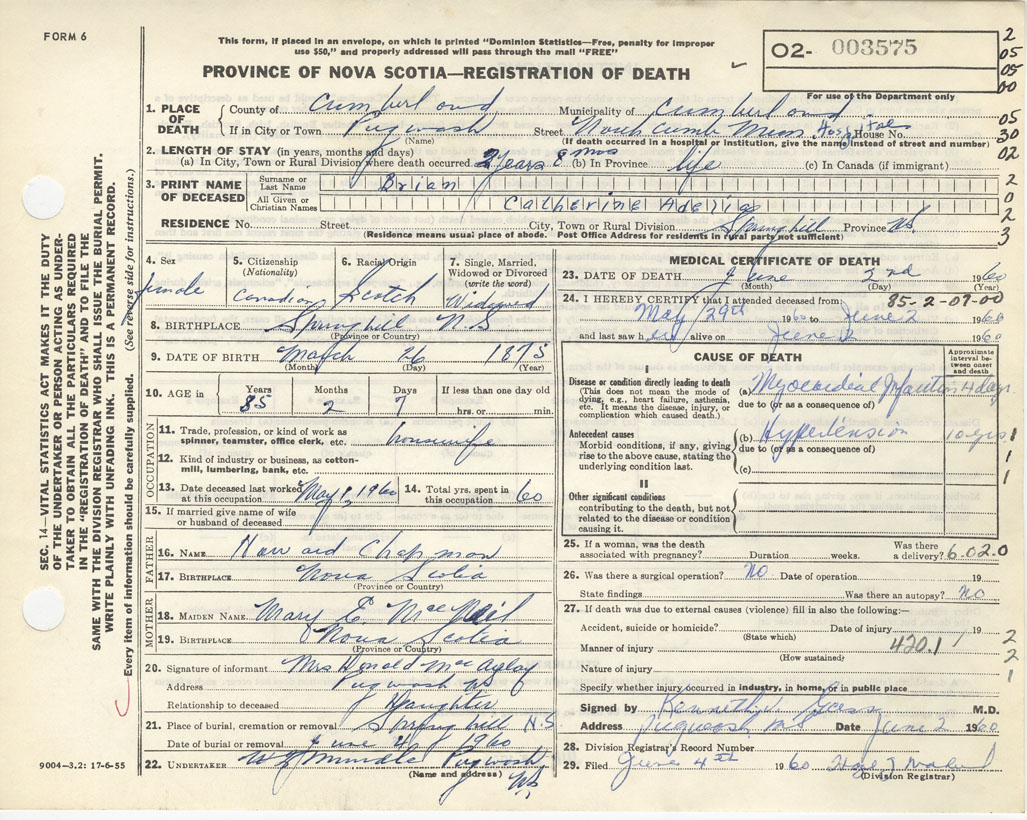 FORM 6
This form, if placed in an envelope, on which is printed "Dominion Statistics—Free, penalty for improper
use $50," and properly addressed will pass through the mail "FREE"
PROVINCE OF NOVA SCOTIA—REGISTRATION OF DEATH
02- 003575
For use of the Department only
2
05
05
00
05
30
02
2
0
2
3
1. PLACE OF DEATH
County of Cumberland Municipality of Cumberland
If in City or Town Pugwash Street North Cumb Mem Hospital House No.
(Name) (If death occurred in a hospital or institution, give the name instead of street and number)
2. LENGTH OF STAY (in years, months and days)
(a) In City, Town or Rural Division where death occurred 2 years 8 mos (b) In Province life (c) In Canada (if immigrant)
3. PRINT NAME OF DECEASED
Surname or Last Name Brian
All Given or Christian Names Catherine Adelia
RESIDENCE No. Street City, Town or Rural Division Springhill Province NS.
(Residence means usual place of abode. Post Office Address for residents in rural party not sufficient)
SEC. 14—VITAL STATISTICS ACT MAKES IT THE DUTY
OF THE UNDERTAKER OR PERSON ACTING AS UNDER-
TAKER TO OBTAIN ALL THE PARTICULARS REQUIRED
IN THE "REGISTRATION OF DEATH" AND TO FILE THE
SAME WITH THE DIVISION REGISTRAR WHO SHALL ISSUE THE BURIAL PERMIT.
WRITE PLAINLY WITH UNFADING INK. THIS IS A PERMANENT RECORD.
Every item of information should be carefully supplied. (See reverse side for instructions.)
4. Sex 5. Citizenship 6. Racial Origin 7. Single, Married,
(Nationality) Widowed or Divorced
(write the word)
female Canadian Scotch Widowed
8. BIRTHPLACE Springhill N.S
(Province or Country)
9. DATE OF BIRTH March 26 1875
(Month) (Day) (Year)
10. AGE in
Years Months Days If less than one day old
85 2 7 hrs. or min.
OCCUPATION
11. Trade, profession, or kind of work as
spinner, teamster, office clerk, etc. housewife
12. Kind of industry or business, as cotton-
mill, lumbering, bank, etc.
13. Date deceased last worked
at this occupation May 1, 1960
14. Total yrs. spent in
this occupation 60
15. If married give name of wife
or husband of deceased
FATHER
16. NAME Howard Chapman
17. BIRTHPLACE Nova Scotia
(Province or Country)
MOTHER
18. MAIDEN NAME Mary E. MacNeil
19. BIRTHPLACE Nova Scotia
(Province or Country)
20. Signature of informant Mrs Donald
Address Pugwash NS
Relationship to deceased Daughter
21. Place of burial, cremation or removal Springhill N.S
Date of burial or removal June 4 1960
22. UNDERTAKER Pugwash
(Name and address) NS
9004—3.2: 17-6-55
MEDICAL CERTIFICATE OF DEATH
23. DATE OF DEATH June 2nd 1960
(Month) (Day)
24. I HEREBY CERTIFY that I attended deceased from: 85-2-07-00
May 29th 1960 to June 2 1960
and last saw her alive on June 2 1960
CAUSE OF DEATH
Approximate
interval be-
tween onset
and death
I
Disease or condition directly leading to death
(This does not mean the mode of
dying, e.g., heart failure, asthenia,
etc. It means the disease, injury, or
complication which caused death.)
(a) Myocardial Infarction 4 days
due to (or as a consequence of)
Antecedent causes
Morbid conditions, if any, giving
rise to the above cause, stating the
underlying condition last.
(b) Hypertension 10 yrs
due to (or as a consequence of)
(c)
1
1
1
II
Other significant conditions
contributing to the death, but not
related to the disease or condition
causing it.
25. If a woman, was the death
associated with pregnancy? Duration weeks. Was there
a delivery? 6.02.0
26. Was there a surgical operation? NO Date of operation 19
State findings Was there an autopsy? NO
27. If death was due to external causes (violence) fill in also the following:—
Accident, suicide or homicide? Date of injury 19
(State which)
Manner of injury 420.1
(How sustained)
Nature of injury
2
2
1
Specify whether injury occurred in industry, in home, or in public place
Signed by Kenneth M.D.
Address Pugwash NS Date June 2 1960
28. Division Registrar's Record Number
29. Filed June 4th 1960
(Division Registrar)